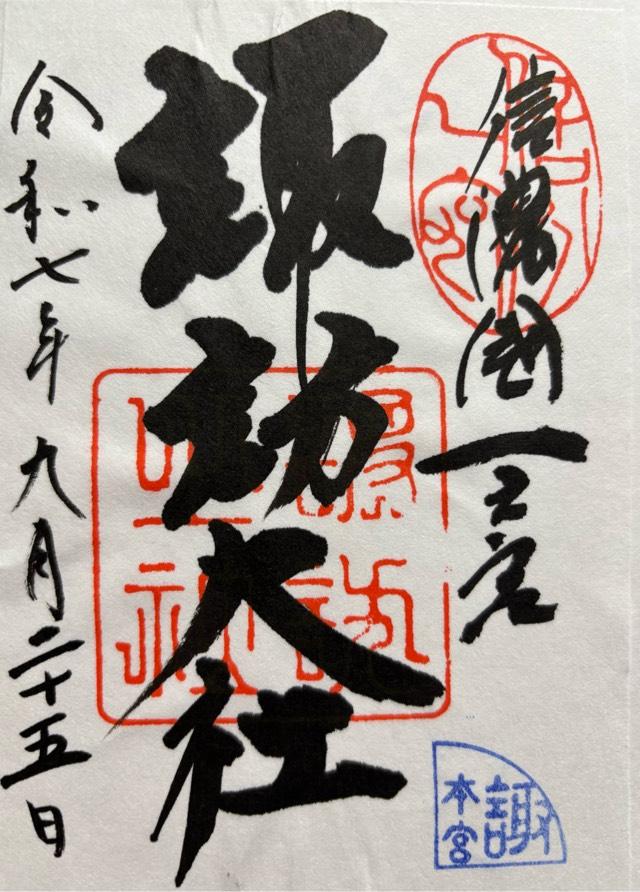 信濃國一之宮
諏訪大社
令和七年九月二十五日
諏訪
之社
諏
本宮